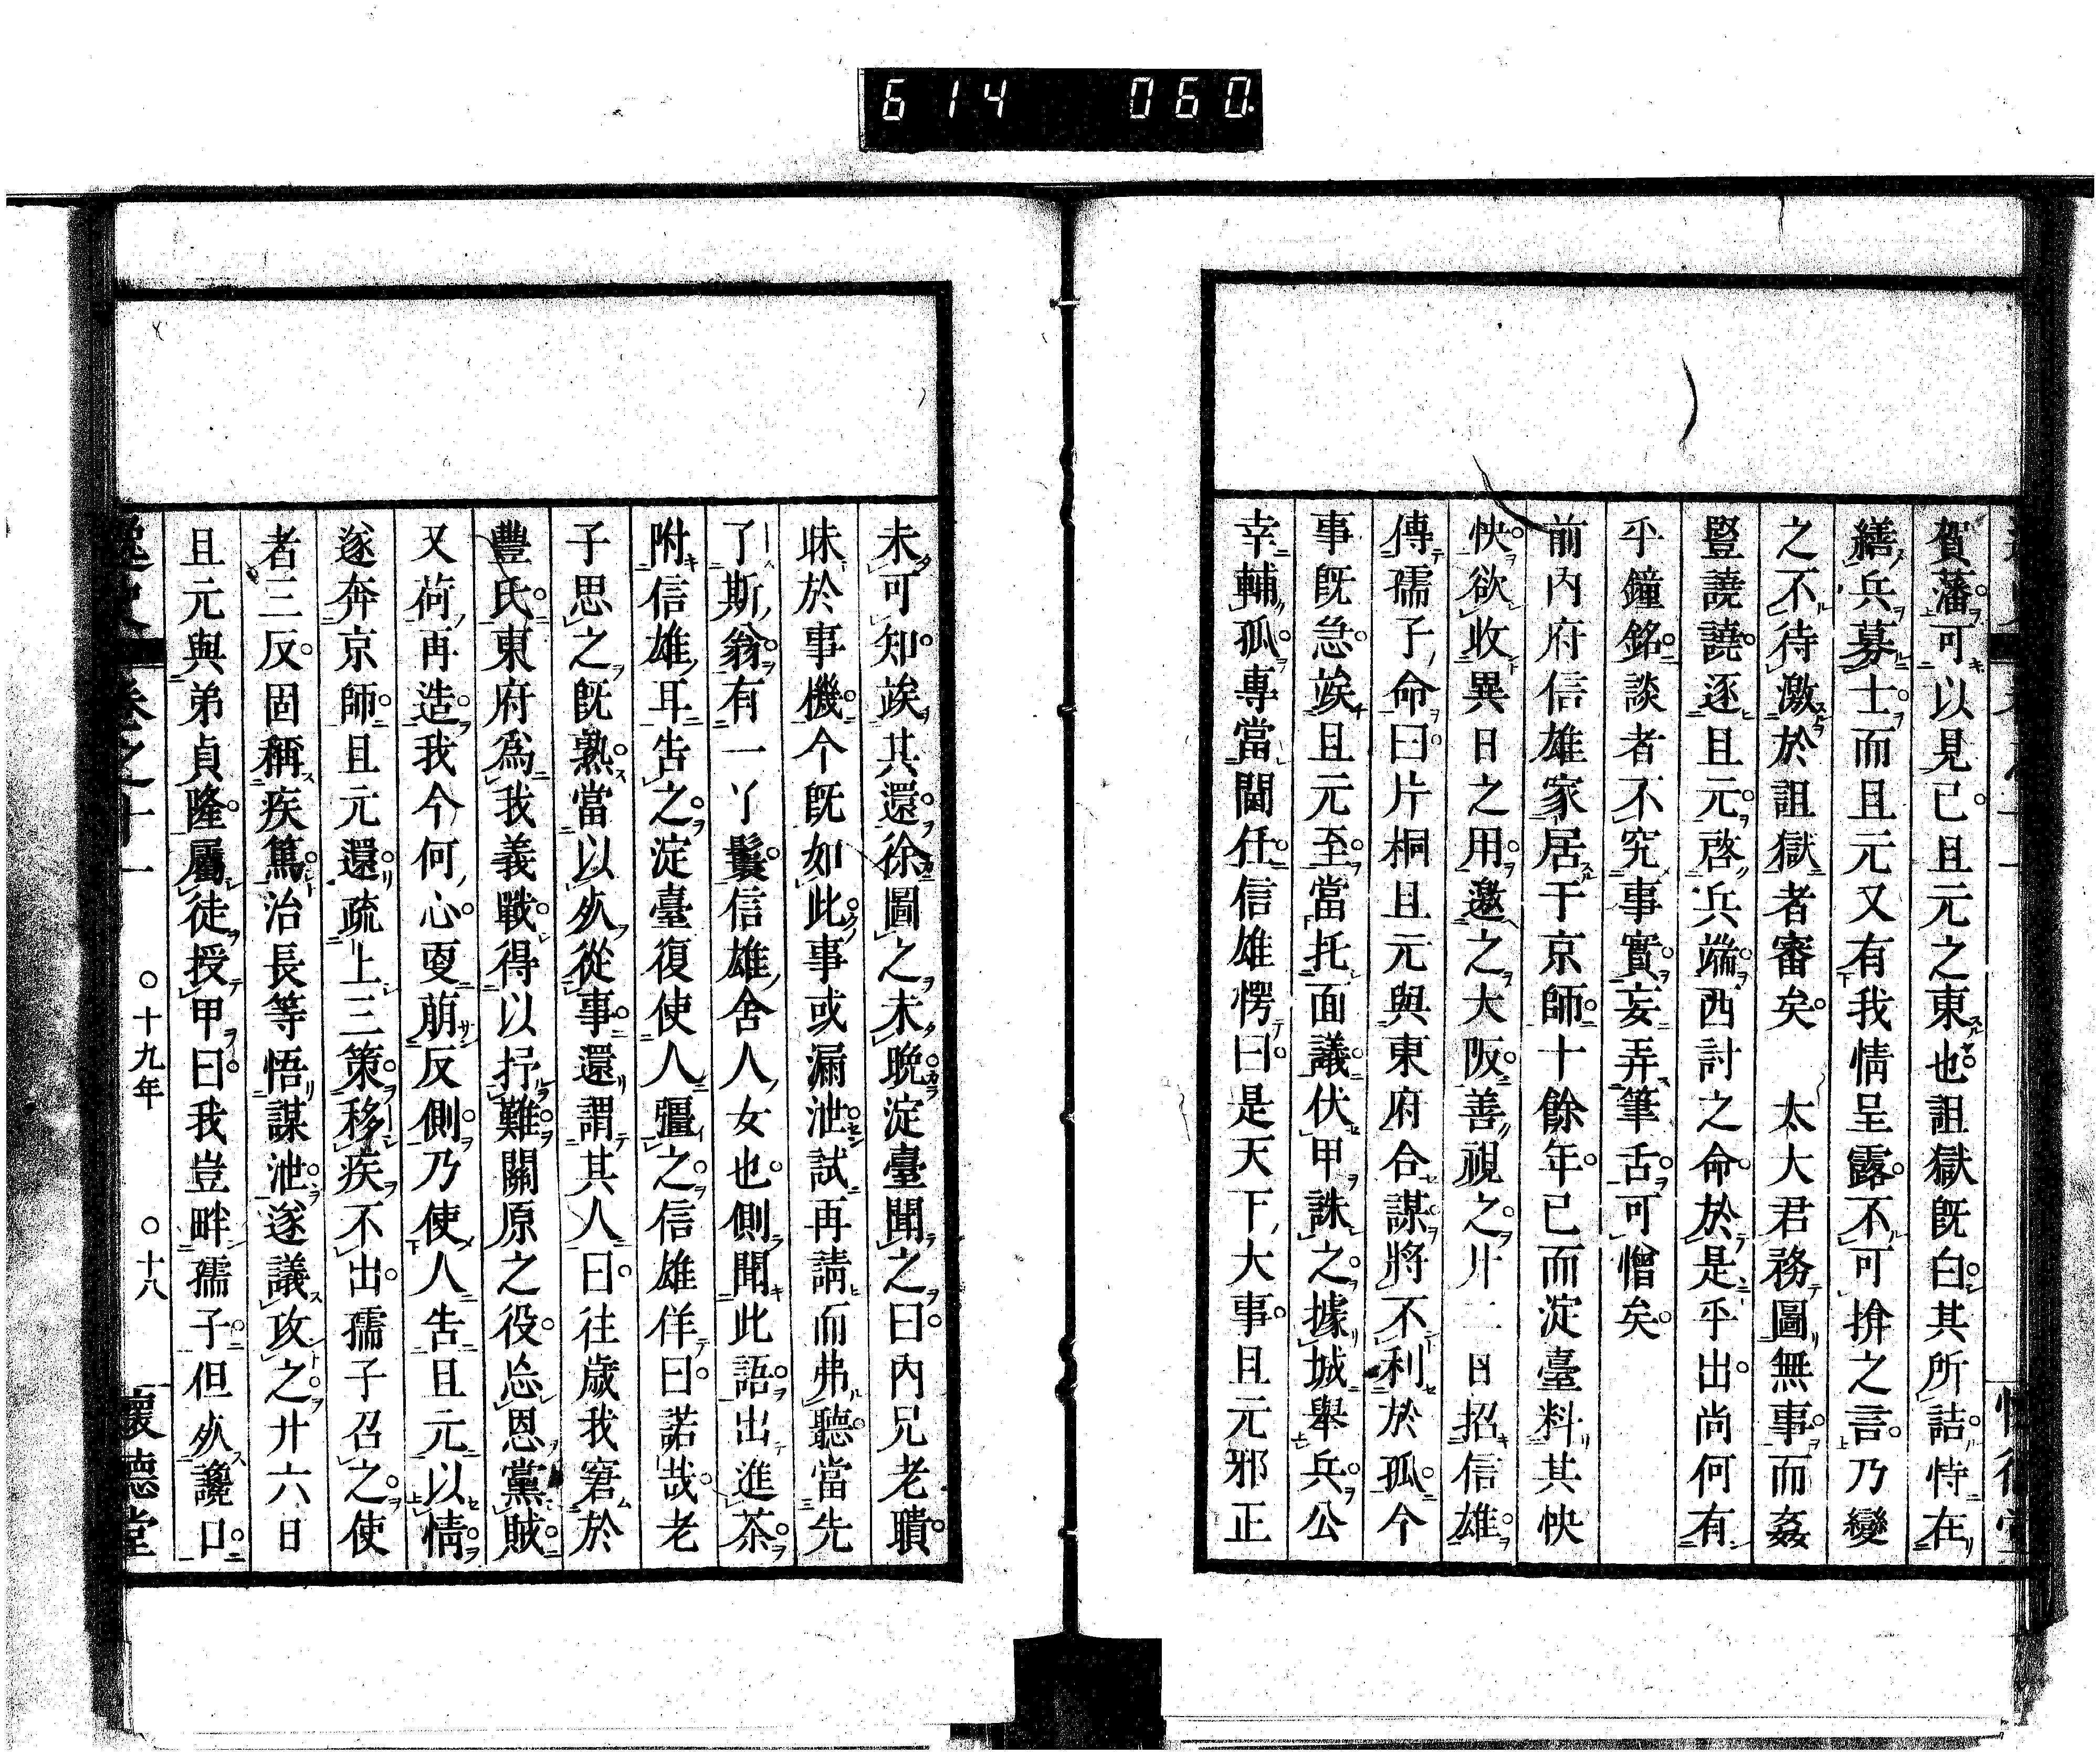 614 060
賀藩可以見已且元之東也詛獄既白其所詰恃在
繕兵募士而且元又有我情呈露不可揜之言乃變
之不待激於詛獄者審矣 太大君務圖無事而姦
豎譊譊逐且元啓兵端西討之命於是乎出尚何有
乎鐘銘談者不究事實妄弄筆舌可憎矣
前內府信雄家居于京師十餘年已而淀臺料其怏
怏欲收異日之用邀之大阪善視之廾二日招信雄
傳孺子命曰片桐且元與東府合謀將不利於孤今
事既急竢且元至當托面議伏甲誅之據城舉兵公
幸輔孤專當閫任信雄愕曰是天下大事且元邪正
未可知竢其還徐圖之未晚淀臺聞之曰內兄老聵
昧於事機今既如此事或漏泄試再請而弗聽當先
了斯翁有一丫鬟信雄舍人女也側聞此語出進茶
附信雄耳告之淀臺復使人彊之信雄佯曰諾哉老
子思之既熟當以死從事還謂其人曰往歲我窘於
豐氏東府爲我義戰得以抒難關原之役忘恩黨賊
又荷再造我今何心更萠反側乃使人告且元以情
遂奔京師且元還疏上三策移疾不出孺子召之使
者三反固稱疾篤治長等悟謀泄遂議攻之廾六日
且元與弟貞隆屬徒授甲曰我豈畔孺子但死讒口
逸史 卷之十一 ○十九年 ○十八 懷德堂